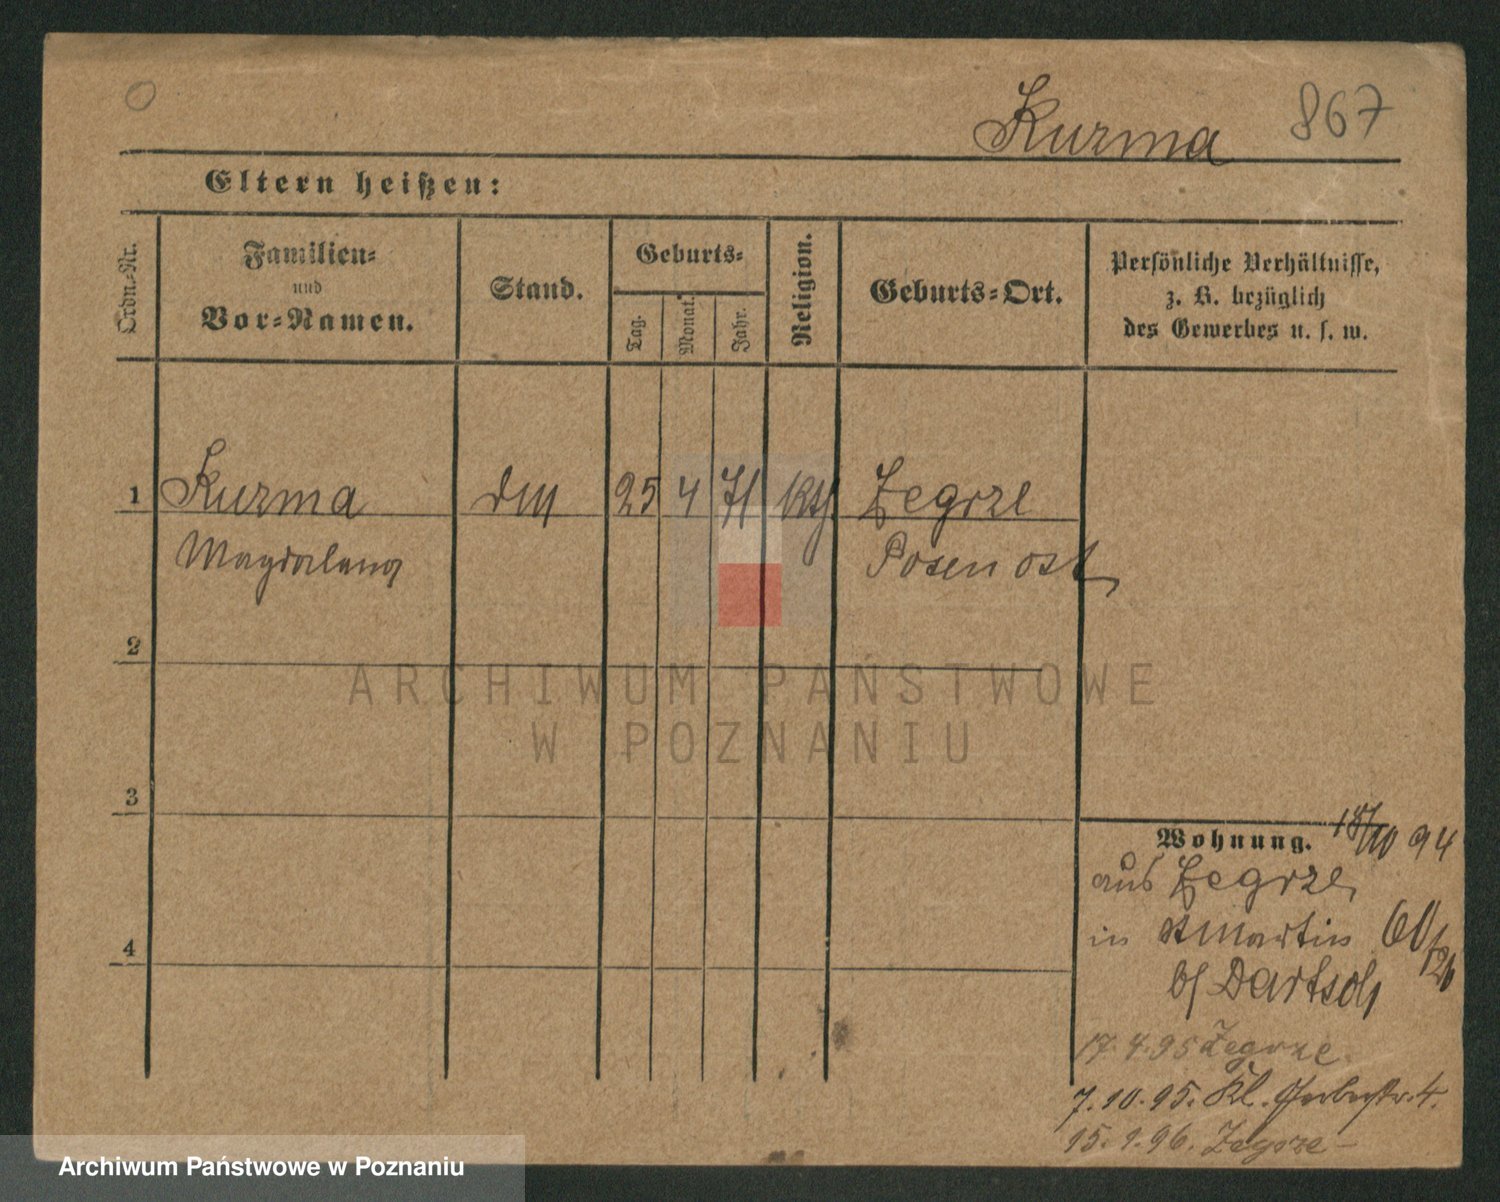 Kurma 867
Eltern heißen:
Ordn.-Nr.
Familien-
und
Vor-Namen.
Stand.
Geburts-
Tag.
Monat.
Jahr.
Religion.
Geburts-Ort.
Persönliche Verhältnisse,
z. B. bezüglich
des Gewerbes u. s. w.
1 Kurma 25 4 71 kth Zegrze
Magdalena Posen ost
2
ARCHIWUM PAŃSTWOWE
W POZNANIU
3
Wohnung. 18/10 94
aus Zegrze
in st Martin 60/
b/ Dartsch
4
17.4.95 Zegrze
7.10.95. Kl. Gerberstr. 4.
15.1.96. Zegrze
Archiwum Państwowe w Poznaniu